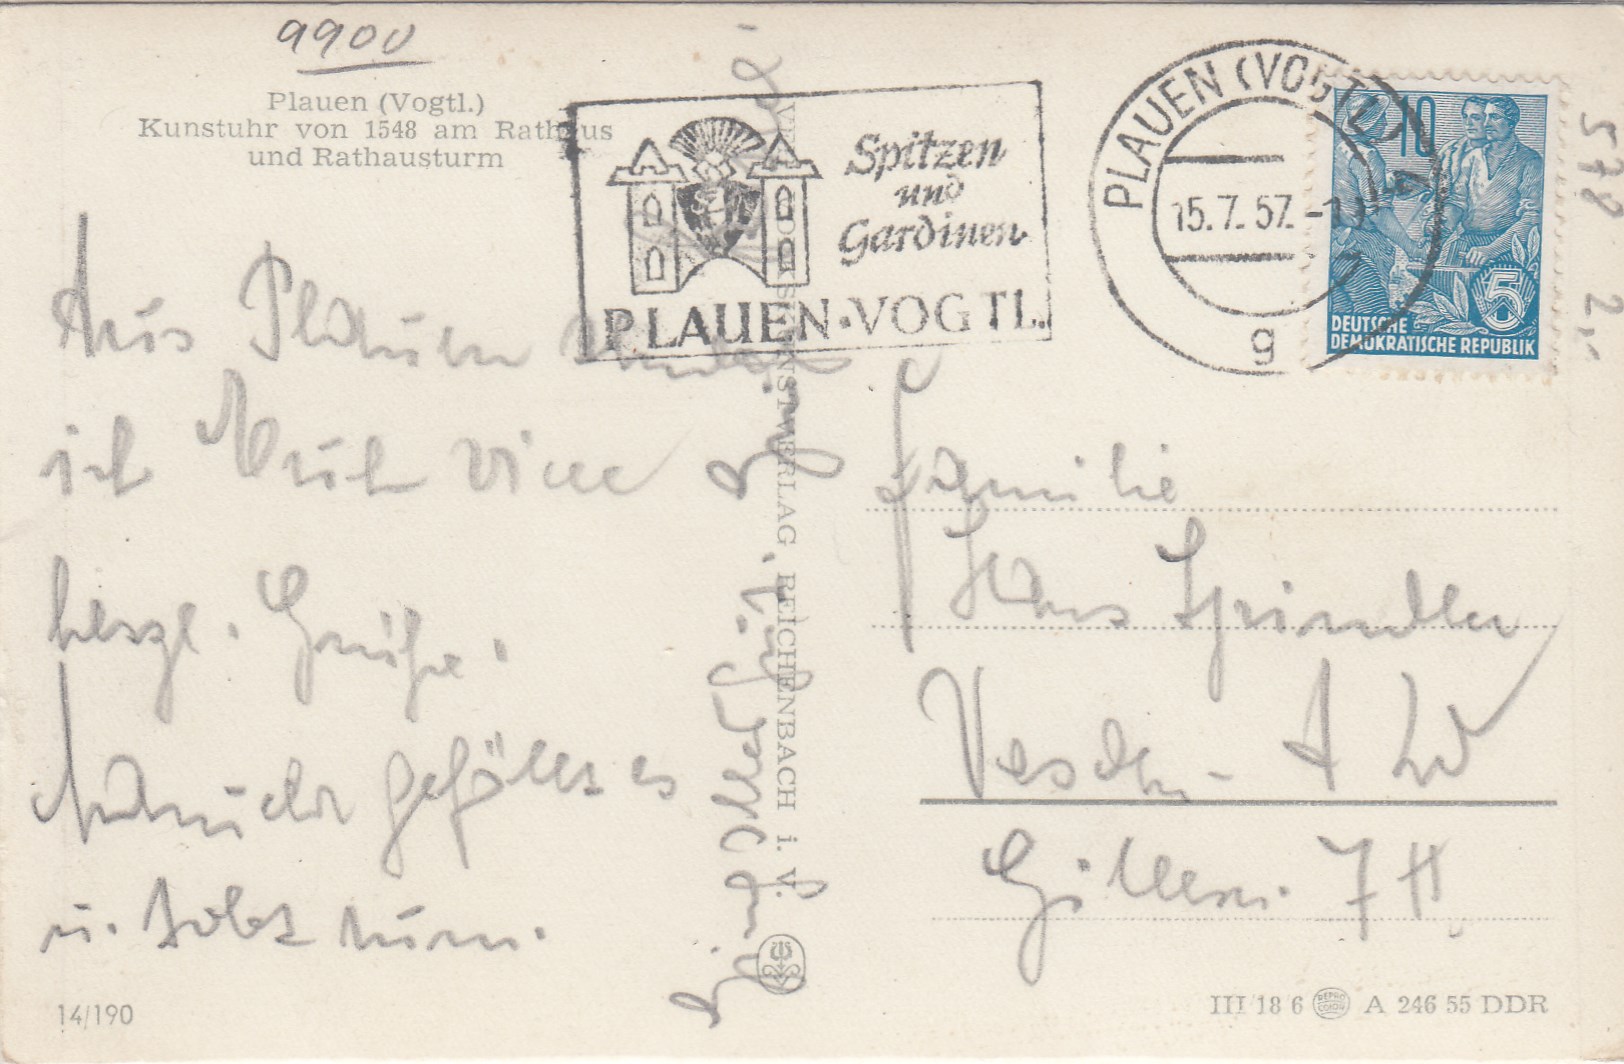 9900
Plauen (Vogtl.)
Kunstuhr von 1548 am Rathaus
und Rathausturm
Spitzen
und
Gardinen
PLAUEN·VOGTL.
PLAUEN (VOGTL)
15.7.57.
g
10
5
DEUTSCHE
DEMOKRATISCHE REPUBLIK
578
2,-
Aus Plauen sendet
ich Euch viele
herzl. Grüße.
gefällt es
u. tobt rum.
Sind alle
VEB VOLKSKUNSTVERLAG REICHENBACH i. V.
Familie
Hans Spindler
Dresden - A
7 H
14/190
III 18 6 A 246 55 DDR